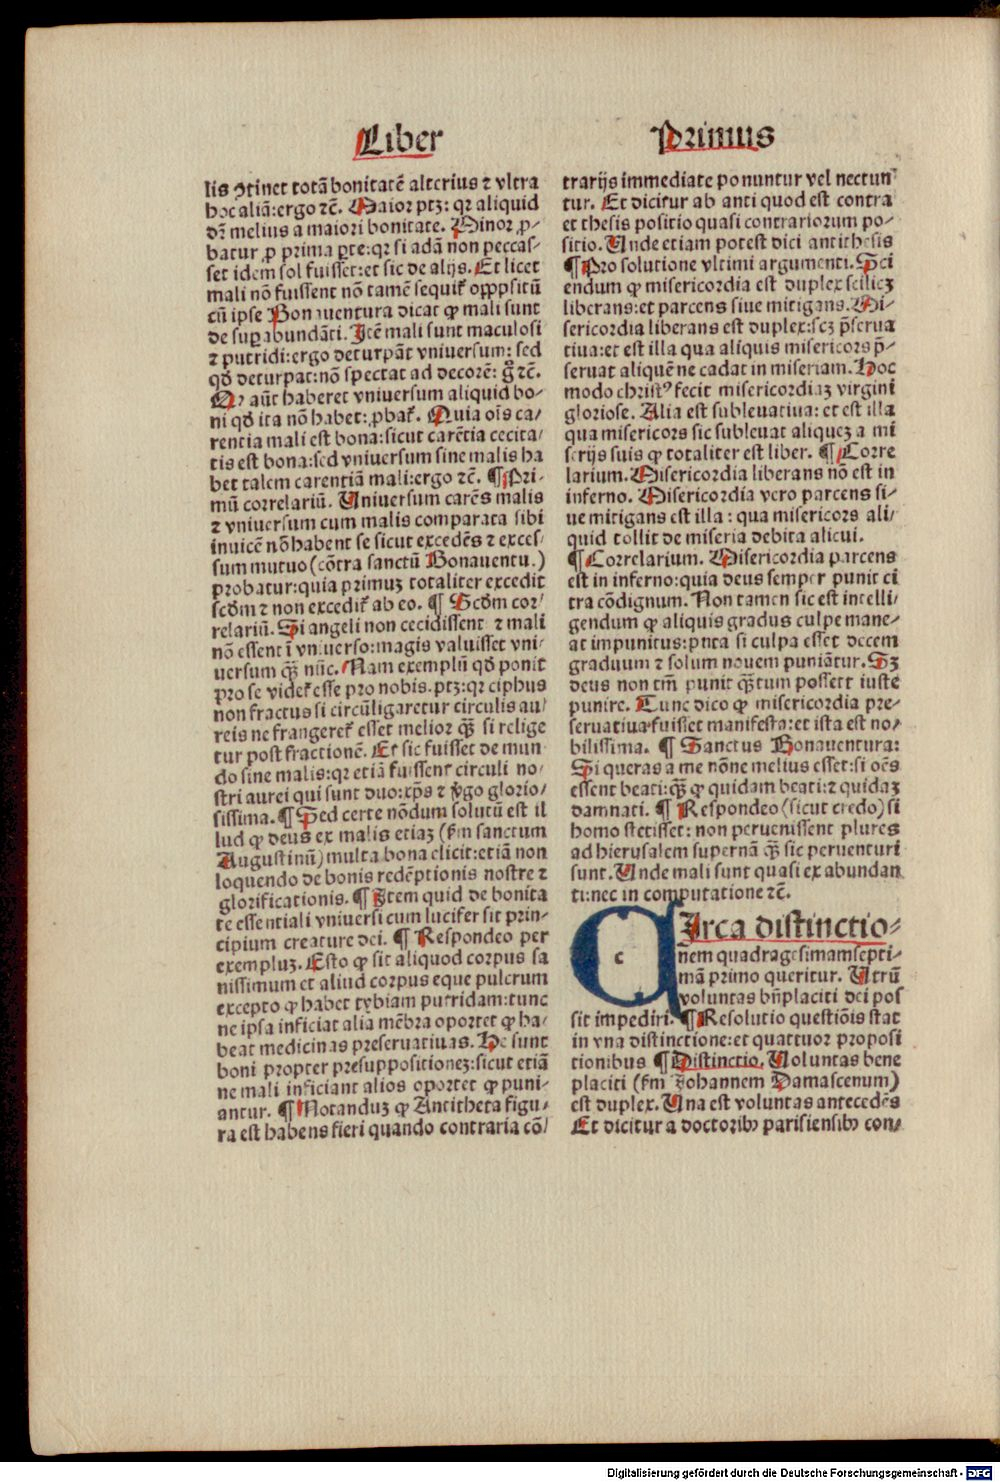 Liber
Primus
lis ꝯtinet totã bonitatẽ alterius ⁊ vltra
hoc aliã: ergo ⁊c̃. Maior ptꝫ: qꝛ aliquid
dꝛ̃ melius a maiori bonitate. Minor ꝓ-
batur ꝓ prima ꝑte: qꝛ si adã non peccas-
set idem sol fuisset: et sic de alijs. Et licet
mali nõ fuissent nõ tamẽ sequit̃ oppositũ
cũ ipse Bonauentura dicat ꝙ mali sunt
de suꝑabundãti. Itẽ mali sunt maculosi
⁊ putridi: ergo deturpãt vniuersum: sed
qd̃ deturpat: nõ spectat ad decorẽ: g̊ ⁊c̃.
Qꝛ aũt haberet vniuersum aliquid bo-
ni qd̃ ita nõ habet: ꝓbat̃. Quia oĩs ca-
rentia mali est bona: sicut carẽtia cecita-
tis est bona: sed vniuersum sine malis ha
bet talem carentiã mali: ergo ⁊c̃. ¶ Pri-
mũ correlariũ. Uniuersum carẽs malis
⁊ vniuersum cum malis comparata sibi
inuicẽ nõ habent se sicut excedẽs ⁊ exces-
sum mutuo (cõtra sanctũ Bonauentu.)
probatur: quia primuꝫ totaliter excedit
scd̃m ⁊ non excedit̃ ab eo. ¶ Scd̃m cor-
relariũ. Si angeli non cecidissent ⁊ mali
nõ essent ĩ vniuerso: magis valuisset vni-
uersum qꝫ̃ nũc. Nam exemplũ qd̃ ponit
pro se videt̃ esse pro nobis. ptꝫ: qꝛ ciphus
non fractus si circũligaretur circulis au-
reis ne frangeret̃ esset melior qꝫ̃ si relige
tur post fractionẽ. Et sic fuisset de mun-
do sine malis: qꝛ etiã fuissent circuli no-
stri aurei qui sunt duo: xp̃s ⁊ v̓go glorio-
sissima. ¶ Sed certe nõdum solutũ est il
lud ꝙ deus ex malis etiaꝫ (fm̃ sanctum
Augustinũ) multa bona elicit: etiã non
loquendo de bonis redẽptionis nostre ⁊
glorificationis. ¶ Item quid de bonita
te essentiali vniuersi cum lucifer sit prin-
cipium creature dei. ¶ Respondeo per
exempluꝫ. Esto ꝙ sit aliquod corpus sa
nissimum et aliud corpus eque pulcrum
excepto ꝙ habet tybiam putridam: tunc
ne ipsa inficiat alia mẽbra oportet ꝙ ha-
beat medicinas preseruatiuas. He sunt
boni propter presuppositionẽꝫ: sicut etiã
ne mali inficiant alios oportet ꝙ puni-
antur. ¶ Notanduꝫ ꝙ Antitheta figu-
ra est habens fieri quando contraria cõ-
trarijs immediate ponuntur vel nectun
tur. Et dicitur ab anti quod est contra
et thesis positio quasi contrariorum po-
sitio. Unde etiam potest dici antithesis
¶ Pro solutione vltimi argumenti. Sci
endum ꝙ misericordia est duplex scilicꝫ
liberans: et parcens siue mitigans. Mi-
sericordia liberans est duplex: scꝫ p̃serua
tiua: et est illa qua aliquis misericors p̃-
seruat aliquẽ ne cadat in miseriam. Hoc
modo christꝰ fecit misericordiaꝫ virgini
gloriose. Alia est subleuatiua: et est illa
qua misericors sic subleuat aliqueꝫ a mi
serijs suis ꝙ totaliter est liber. ¶ Corre
larium. Misericordia liberans nõ est in
inferno. Misericordia vero parcens si-
ue mitigans est illa: qua misericors ali-
quid tollit de miseria debita alicui.
¶ Correlarium. Misericordia parcens
est in inferno: quia deus semper punit ci
tra cõdignum. Non tamen sic est intelli-
gendum ꝙ aliquis gradus culpe mane-
at impunitus: puta si culpa esset decem
graduum ⁊ solum nouem puniãtur. Sꝫ
deus non tm̃ punit qꝫ̃tum possett iuste
punire. Tunc dico ꝙ misericordia pre-
seruatiua fuisset manifesta: et ista est no-
bilissima. ¶ Sanctus Bonauentura:
Si queras a me nõne melius esset: si oẽs
essent beati: qꝫ̃ ꝙ quidam beati: ⁊ quidaꝫ
damnati. ¶ Respondeo (sicut credo) si
homo stetisset: non peruenissent plures
ad hierusalem supernã qꝫ̃ sic peruenturi
sunt. Unde mali sunt quasi ex abundan
ti: nec in computatione ⁊c̃.
CIrca distinctio-
nem quadragesimamsepti-
mã primo queritur. Utrũ
voluntas bñplaciti dei pos
sit impediri. ¶ Resolutio questiõis stat
in vna distinctione: et quattuor proposi
tionibus ¶ Distinctio. Uoluntas bene
placiti (fm̃ Johannem Damascenum)
est duplex. Una est voluntas antecedẽs
Et dicitur a doctoribꝰ parisiensibꝰ con-
Digitalisierung gefördert durch die Deutsche Forschungsgemeinschaft - DFG